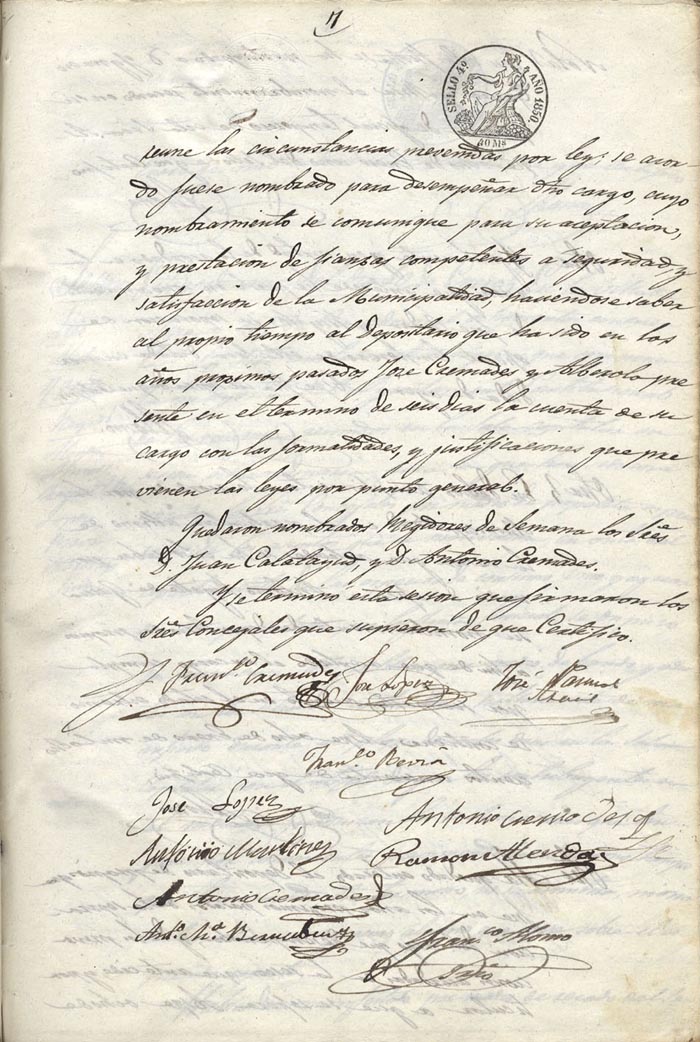 7
SELLO 4º AÑO 1850.
40 Ms
reune las circunstancias prevenidas por ley; se acor-
do fuese nombrado para desempeñar dho cargo, cuyo
nombramiento se comunique para su aceptacion,
y prestacion de fianzas competentes a seguridad, y
satisfaccion de la Municipalidad, haciendose saber
al propio tiempo al Depositario que ha sido en los
años proximos pasados Jose Cremades y Alberola pre
sente en el termino de seis dias la cuenta de su
cargo con las formalidades, y justificaciones que pre
vienen las leyes por punto general.
Quedaron nombrados Regidores de Semana los Sres
D. Juan Calatayud, y D. Antonio Cremades.
Y se termino esta sesion que firmaron los
Sres Concejales que supieron de que Certifico.
Cremades Jose Lopez José
Franco Beviá
Jose Lopez Antonio
Antonio Martinez Ramon
Antonio Cremades
Anto Ma
Franco